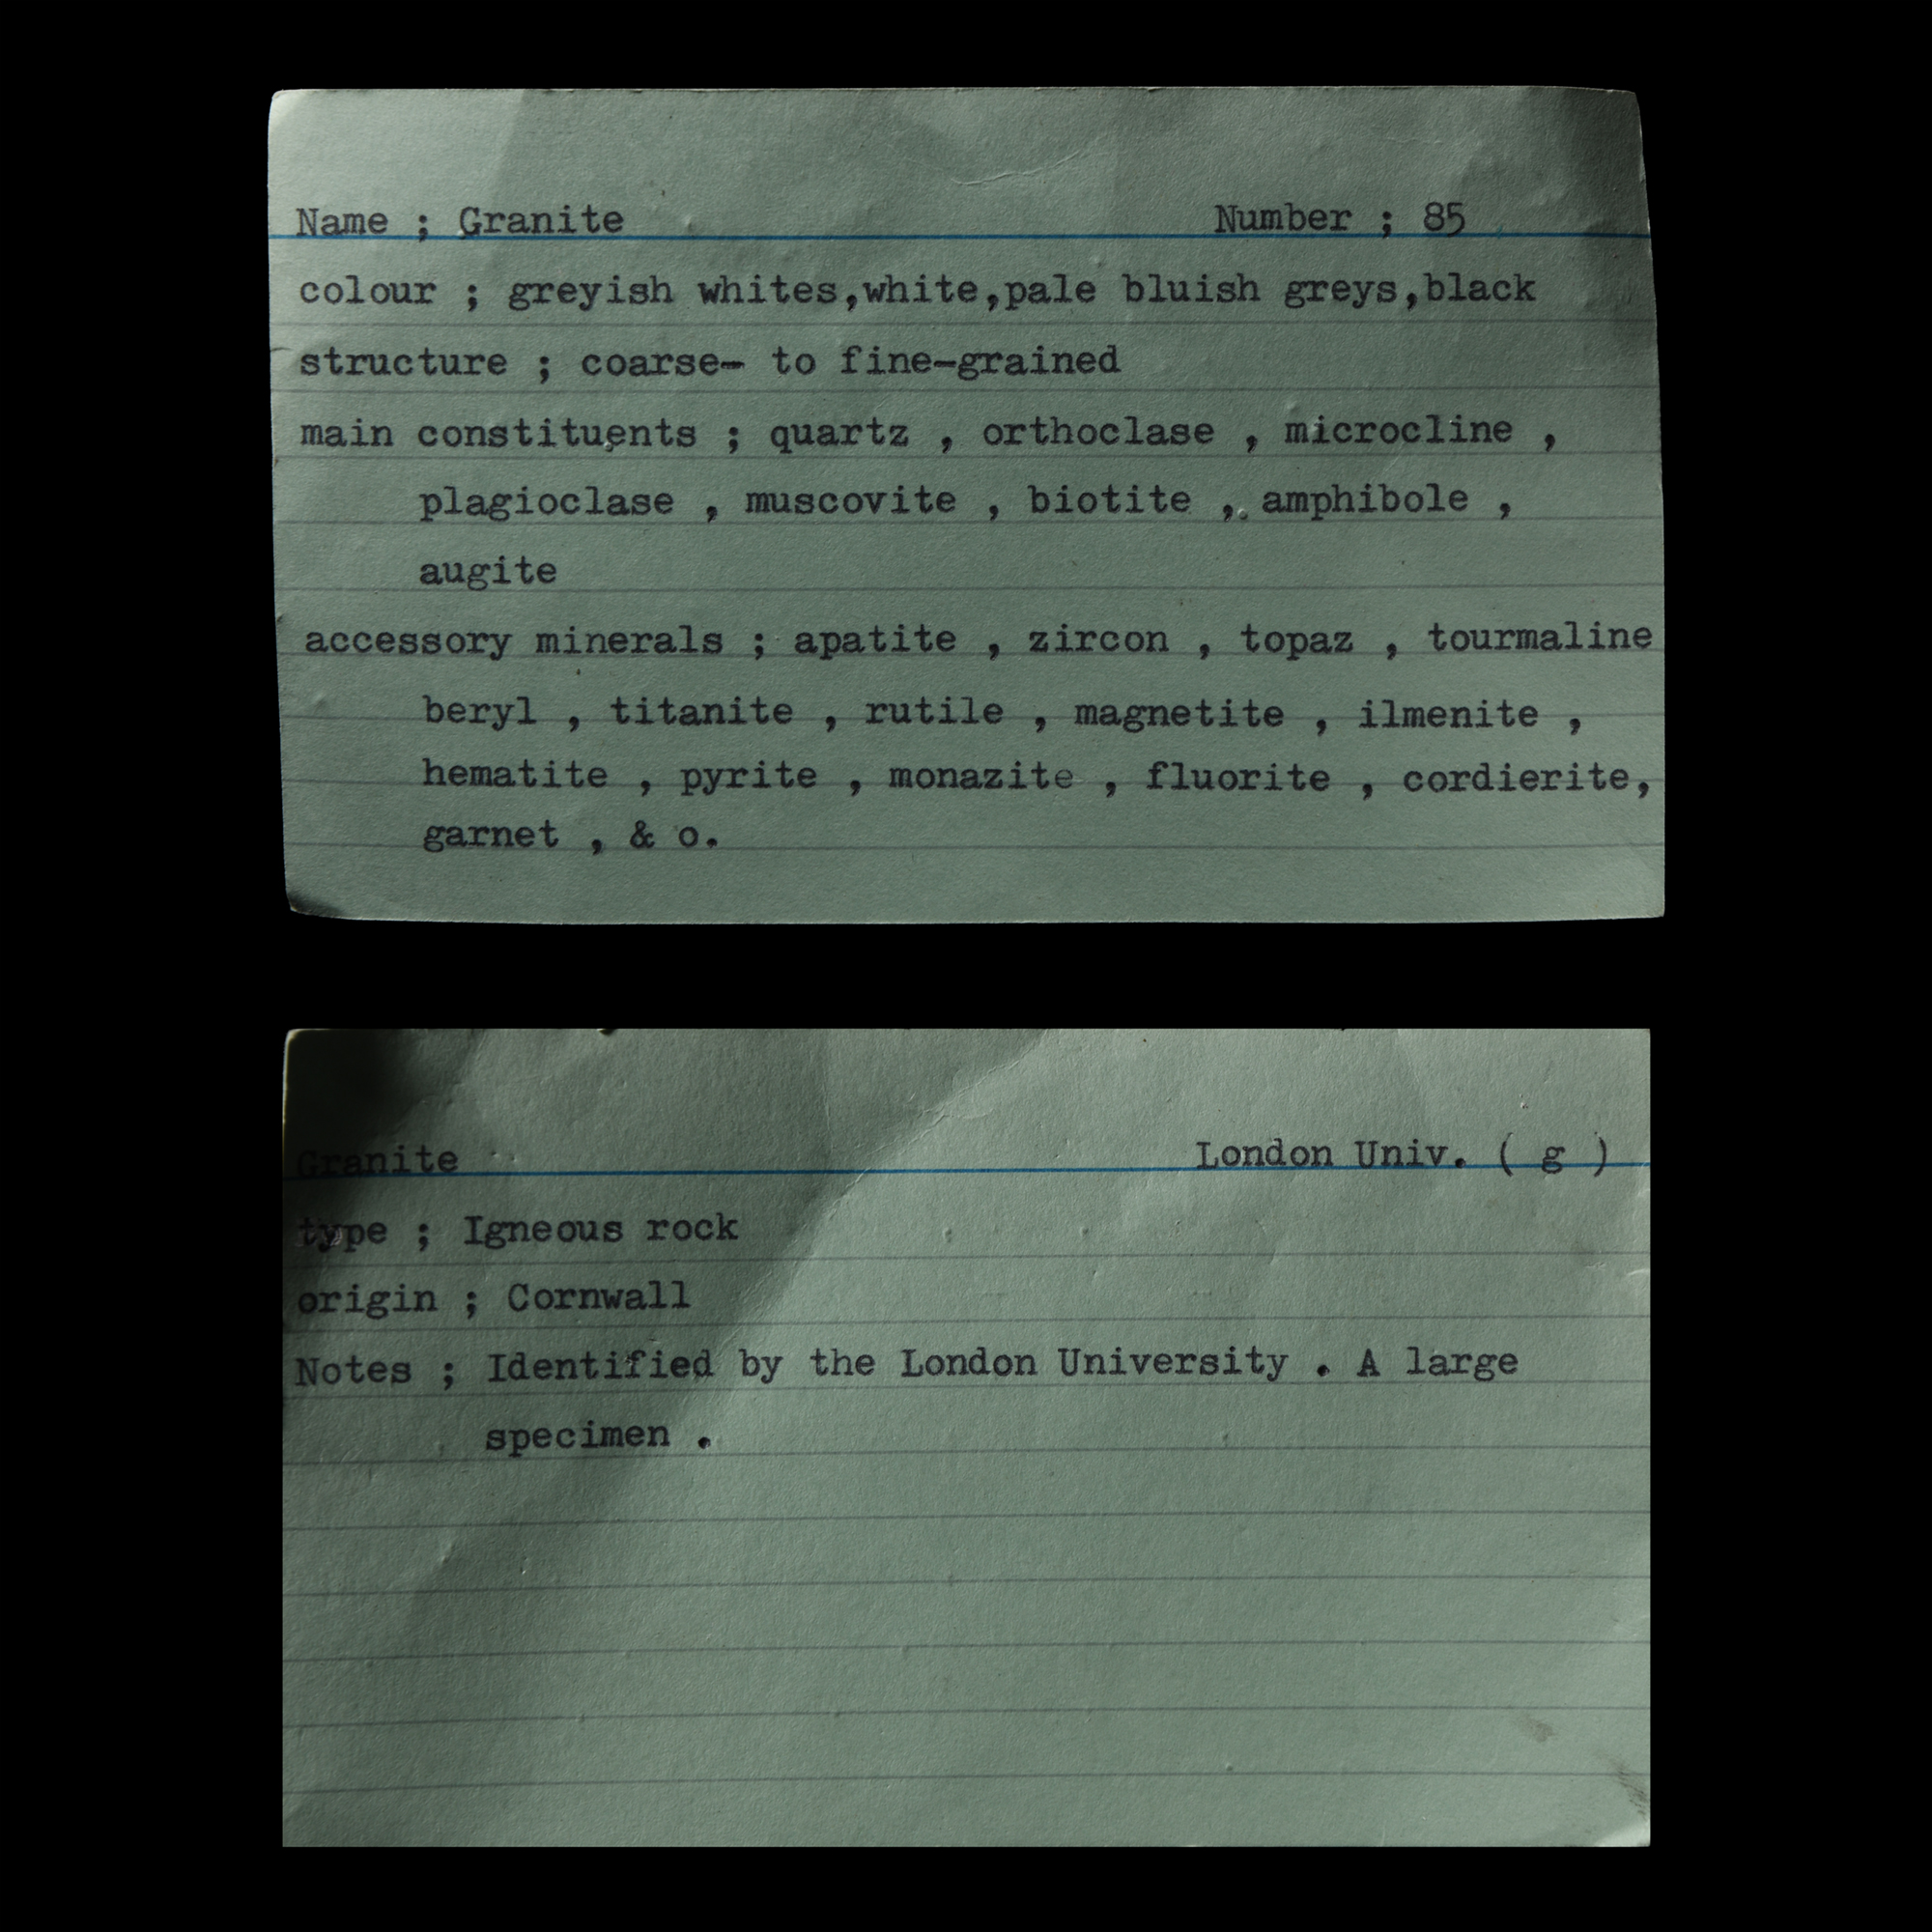 Name ; Granite Number ; 85
colour ; greyish whites,white,pale bluish greys,black
structure ; coarse- to fine-grained
main constituents ; quartz , orthoclase , microcline ,
plagioclase , muscovite , biotite , amphibole ,
augite
accessory minerals ; apatite , zircon , topaz , tourmaline
beryl , titanite , rutile , magnetite , ilmenite ,
hematite , pyrite , monazite , fluorite , cordierite,
garnet , & o.
Granite London Univ. ( g )
type ; Igneous rock
origin ; Cornwall
Notes ; Identified by the London University . A large
specimen .